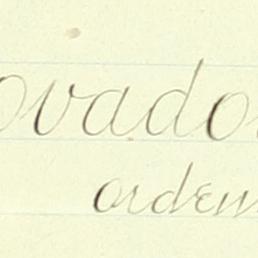 ovado
ordem